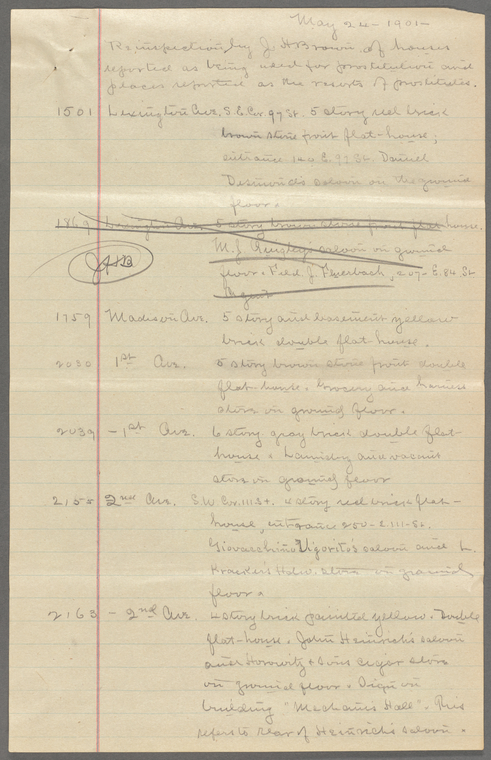 May 24 - 1901 -
Re-inspection by J. H Brown of houses
reported as being used for prostitution and
places reported as the resorts of prostitutes.
1501 Lexington Ave, S.E. Cor. 97 St. 5 story red brick
brown stone front flat-house;
entrance E. 97 St. Daniel
saloon on the ground
floor.
1869 Lexington Ave. 5 story brown stone front flat house.
M. J. saloon on ground
floor. Fred J. Feuerbach, 207 - E. 84 St
Agent
JHB
1759 Madison Ave. 5 story and basement yellow
brick double flat-house.
2030 1st Ave. 5 story brown stone front double
flat-house. Grocery and harness
store on ground floor.
2039 - 1st Ave. 6 story gray brick double flat-
house. Laundry and vacant
store on ground floor
2155 2nd Ave. S.W Cor. 111 St. 4 story red brick flat-
house, entrance 250 - E. 111 - St.
Giovacchino Vigorito's saloon and L.
Kracker's Hdw. store on ground
floor.
2163 - 2nd Ave. 4 story brick painted yellow. Double
flat-house. John Heinrich's saloon
and Horowitz & Sons cigar store
on ground floor. Sign on
building "Mechanics Hall". This
refers to rear of Heinrich's saloon.